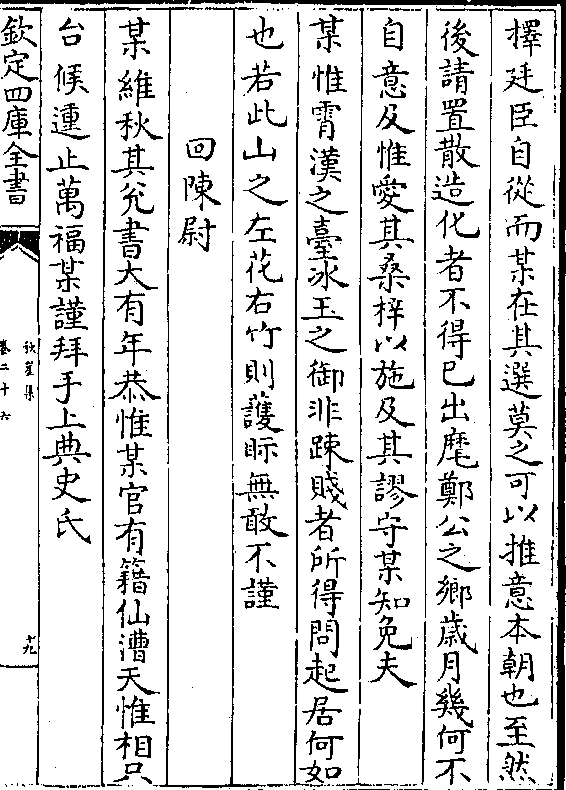 擇廷臣自從而某在其選莫之可以推意本朝也至然
後請置散造化者不得已出麾鄭公之鄉歲月幾何不
自意及惟愛其桑梓以施及其謬守某知免夫
某惟霄漢之臺冰玉之御非踈賤者所得問起居何如
也若此山之左花右竹則護眎無敢不謹
回陳尉
某維秋其兊書大有年恭惟某官有籍仙漕天惟相只
台候連止萬福某謹拜手上典史氏
欽定四庫全書
秋崖集
卷二十六
十九